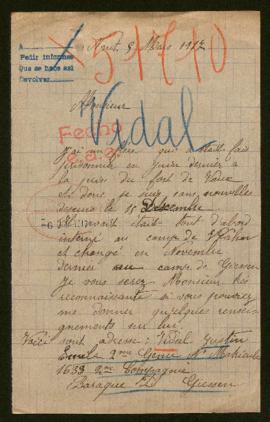 A
Pedir informes
Que se hace así
Devolver
X 51710
8 Mars 1917
Monsieur
Vidal
Fecho
J'ai un frère qui était fait
prisonnier en Juin dernier à
la prise du fort de Vaux
et donc je suis sans nouvelles
depuis le 15 Décembre
était tout d'abord
interné au camp de
et changé en Novembre
dernier au camp de Giessen
Je vous serez Monsieur très
reconnaissante si vous pouvez
me donner quelques rensei-
gnements sur lui.
Voici son adresse: Vidal Justin
Emile 2me Génie No Matricule
1633 2me Compagnie
Baraque Giessen